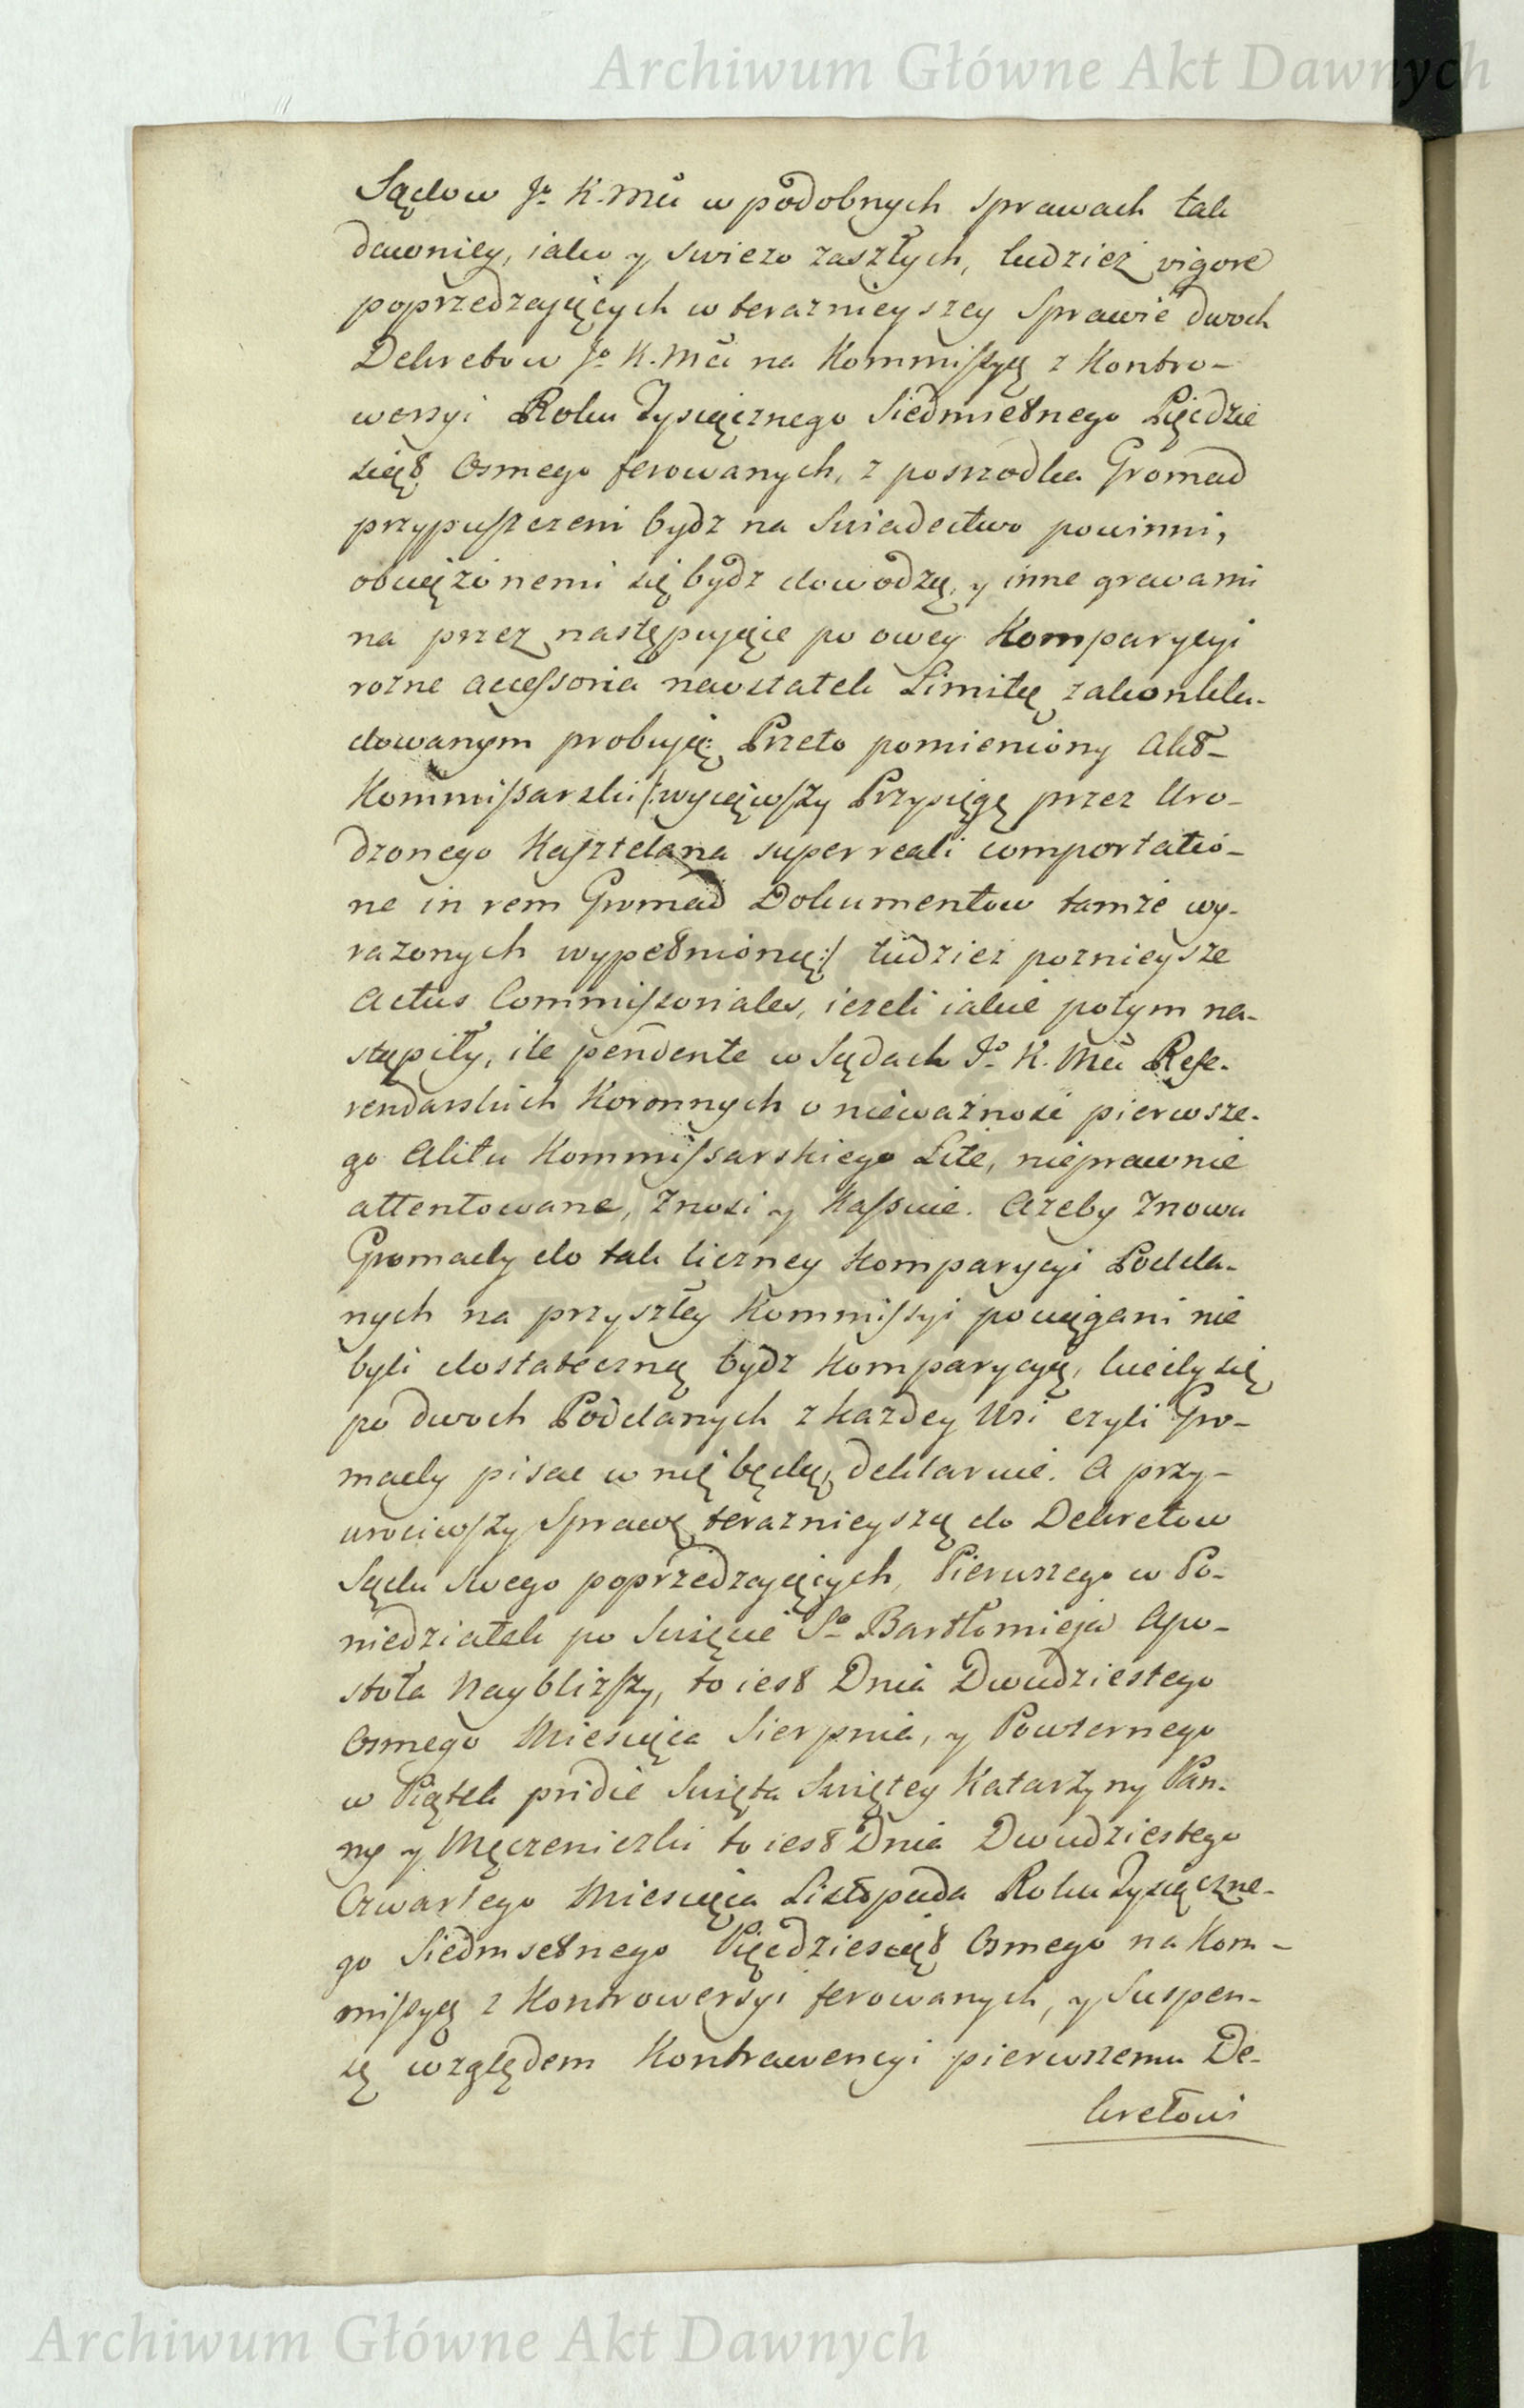 Archiwum Główne Akt Dawnych
Sądow Jº K. Mci w podobnych sprawach tak
dawniey, iako y swiezo zaszłych, tudziez vigore
poprzedzaiących w teraznieyszey Sprawie dwoch
Dekretow Jº K. Mci na Kommissyą z Kontro-
wersyi Roku Tysiącznego Siedmsetnego Pięcdzie
siąt Osmego ferowanych, z posrzodka Gromad
przypuszczeni bydz na Swiadectwo powinni,
obciązonemi się bydz dowodzą, y inne grawami
na przez następuiące po owey Komparycyi
rozne accessoria nawstatek Limitą zakonklu-
dowanym probuią: Przeto pomieniony Akt
Kommissarski /:wyiąwszy Przysięgę przez Uro-
dzonego Kasztelana super reali comportatio-
ne in rem Gromad Dokumentow tamże wy-
razonych wypełnioną:/ tudziez poznieysze
Actus Commissoriales, iezeli iakie potym na-
stąpiły, ile pendente w Sądach Jº K. Mci Refe-
rendarskich Koronnych o nieważnosc pierwsze-
go Aktu Kommissarskiego Lite, nieprawnie
attentowane, Znosi y Kassuie. Azeby Znowu
Gromady do tak liczney Komparycyi Podda-
nych na przyszłey Kommissyi pociągani nie
byli dostateczną bydz Komparycyą, kiedy się
po dwoch Poddanych z kazdey Wsi czyli Gro-
mady pisac w nią będą, deklaruie. A przy-
wrociwszy Sprawę teraznieyszą do Dekretow
Sądu Swego poprzedzaiących, Pierwszego w Po-
niedziałek po Swięcie Sº Bartłomieja Apo-
stoła Nayblizszy, to iest Dnia Dwudziestego
Osmego Miesiąca Sierpnia, y Powtornego
w Piątek pridie Swięta Swiętey Katarzyny Pan-
ny y Męczeniczki to iest Dnia Dwudziestego
Czwartego Miesiąca Listopada Roku Tysiączne-
go Siedmsetnego Pięcdziesiąt Osmego na Kom-
missyą z Kontrowersyi ferowanych, y Suspen-
są względem Kontrawencyi pierwszemu De-
kretowi
Archiwum Główne Akt Dawnych